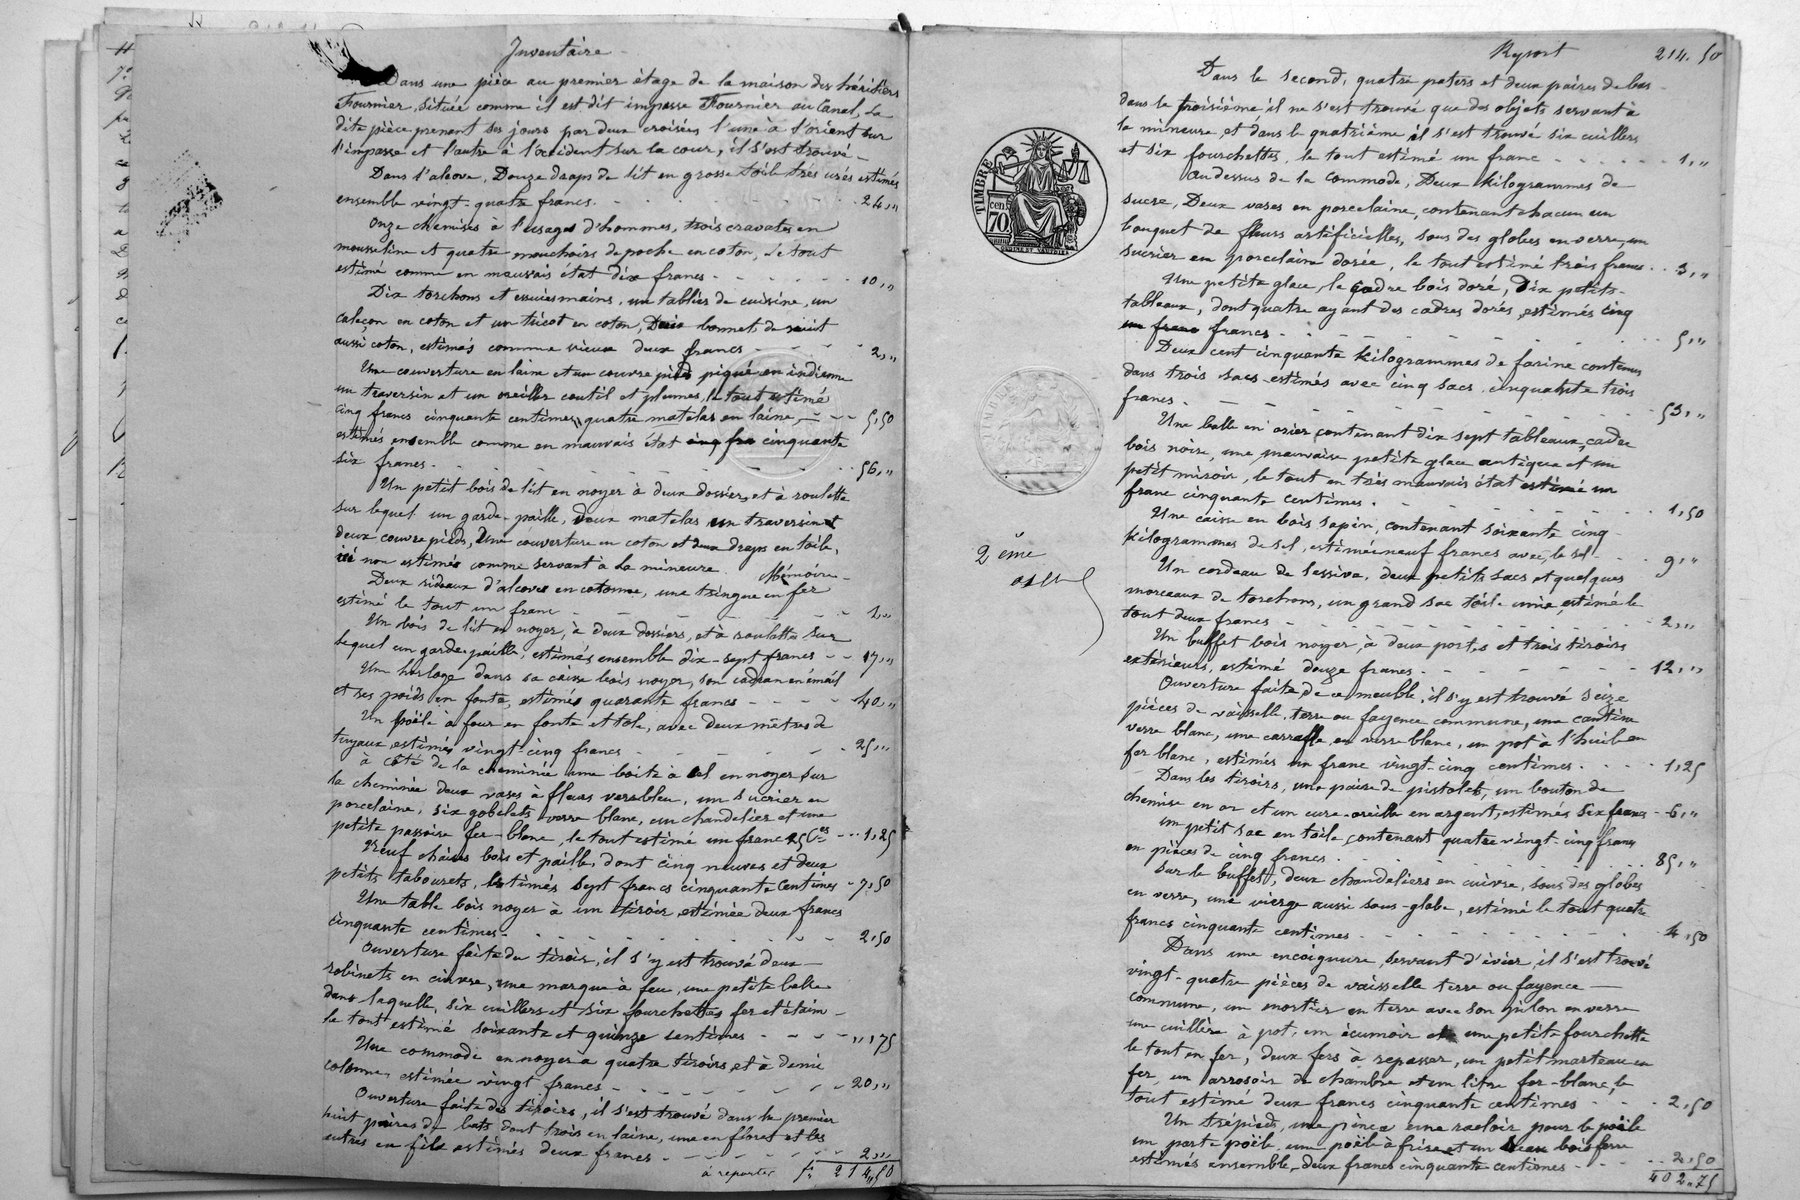 Inventaire
Dans une pièce au premier étage de la maison des héritiers
Fournier, située comme il est dit impasse Fournier au Canal, La
dite pièce prenant ses jours par deux croisées l'une à l'orient sur
l'impasse et l'autre à l'occident sur la cour, il s'est trouvé
Dans l'alcove, Douze draps de lit en grosse toile très usés estimés
ensemble vingt-quatre francs. 24,"
Onze chemises à l'usage d'hommes, trois cravates en
mousseline et quatre mouchoirs de poche en coton, le tout
estimé comme en mauvais état dix francs 10,"
Dix torchons et essuiesmains, un tablier de cuisine, un
caleçon en coton et un tricot en coton, Deux bonnets de nuit
aussi coton, estimés comme vieux deux francs 2,"
Une couverture en laine et un couvre pieds piqué en indienne
un traversin et un oreiller coutil et plumes, le tout estimé
cinq francs cinquante centimes, quatre matelas en laine, 5,50
estimés ensemble comme en mauvais état cinq fra cinquante
six francs. 56,"
Un petit bois de lit en noyer à deux dossiers, et à roulette
sur lequel un garde-paille, deux matelas un traversin et
deux couvre pieds, Une couverture en coton et deux draps en toile,
ici non estimés comme servant à la mineure. Mémoire
Deux rideaux d'alcove en cotonne, une tringue en fer
estimé le tout un franc 1,"
Un bois de lit en noyer, à deux dossiers, et à roulettes sur
lequel un garde-paille, estimés ensemble dix-sept francs 17,"
Une horloge dans sa caisse bois noyer, son cadran en émail
et ses poids en fonte, estimés quarante francs 40,"
Un poële à four en fonte et tole, avec deux mètres de
tuyaux estimés vingt-cinq francs 25,"
à côté de la cheminée une boite à sel en noyer sur
la cheminée deux vases à fleurs verre bleu, un sucrier en
porcelaine, six gobelets verre blanc, un chandelier et une
petite passoire fer-blanc, le tout estimé un franc 25 Ces 1,25
Neuf chaises bois et paille, dont cinq neuves et deux
petits tabourets, estimés sept francs cinquante centimes 7,50
Une table bois noyer à un tiroir estimée deux francs
cinquante centimes 2,50
Ouverture faite du tiroir, il s'y est trouvé deux
robinets en cuivre, une marque à feu, une petite
dans laquelle, six cuillers et six fourchettes fer et étain
le tout estimé soixante et quinze centimes ",75
Une commode en noyer à quatre tiroirs, et à demi
colonne, estimée vingt francs 20,"
Ouverture faite des tiroirs, il s'est trouvé dans le premier
huit paires de bas dont trois en laine, une en floret et les
autres en fils estimés deux francs 2,"
à reporter fr. 214,50
Report 214.50
Dans le second, quatre paters et deux paires de bas
dans le troisième il ne s'est trouvé que des objets servant à
la mineure, et dans le quatrième il s'est trouvé six cuillers
et six fourchettes, le tout estimé un franc 1,"
Au dessus de la commode, Deux kilogrammes de
sucre, Deux vases en porcelaine, contenant chacun un
bouquet de fleurs artificielles, sous des globes en verre, un
sucrier en porcelaine dorée, le tout estimé trois francs 3,"
Une petite glace, le cadre bois doré, Dix petits
tableaux, dont quatre ayant des cadres dorés, estimés cinq
un franc francs 5,"
Deux cent cinquante kilogrammes de farine contenus
dans trois sacs estimés avec cinq sacs, cinquante trois
francs. 53,"
Une balle en osier, contenant dix sept tableaux, cadre
bois noire, une mauvaise petite glace antique et un
petit miroir, le tout en très mauvais état estimé un
franc cinquante centimes. 1,50
Une caisse en bois sapin, contenant soixante cinq
kilogrammes de sel, estimée neuf francs avec, le sel 9,"
Un cordeau de lessive, deux petits sacs et quelques
morceaux de torchons, un grand sac toile unie, estimé le
tout deux francs 2,"
Un buffet bois noyer, à deux portes et trois tiroirs
extérieurs, estimé douze francs. 12,"
Ouverture faite de ce meuble, il s'y est trouvé seize
pièces de vaisselle, terre ou fayence commune, une cantine
verre blanc, une carraffe, en verre blanc, un pot à l'huile en
fer blanc, estimés un franc vingt-cinq centimes. 1,25
Dans les tiroirs, une paire de pistolets, un bouton de
chemise en or et un cure-oreille en argent, estimés six francs 6,"
Un petit sac en toile contenant quatre vingt-cinq francs
en pièces de cinq francs. 85,"
Sur le buffet, deux chandeliers en cuivre, sous des globes
en verre, une vierge aussi sous-globe, estimé le tout quatre
francs cinquante centimes 4,50
Dans une encoignure servant d'évier, il s'est trouvé
vingt-quatre pièces de vaisselle terre ou fayence
commune, un mortier en terre avec son pilon en verre
une cuillère à pot, un écumoir et une petite fourchette
le tout en fer, deux fers à repasser, un petit marteau en
fer, un arrosoir de chambre et un litre fer-blanc, le
tout estimé deux francs cinquante centimes 2,50
Un trépied, une pince une racloir pour le poële
un porte poële, une poële à frire et un seau bois ferré
estimés ensemble, deux francs cinquante centimes 2,50
402,75
TIMBRE
70 cen.
2ème